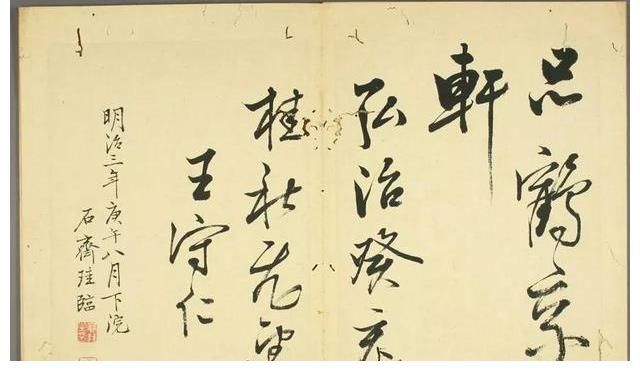 鶴
軒
弘治癸亥
桂秋既望
王守仁
明治三年庚午八月下浣
石齊珪臨